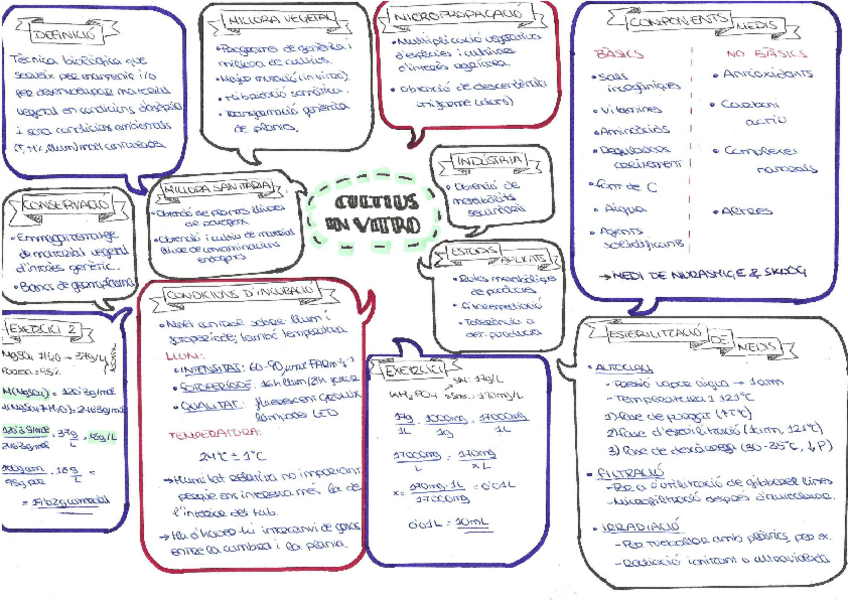 DEFINICIÓ
Tècnica biològica que
serveix per mantenir i/o
per desenvolupar material
vegetal en condicions d'asèpsia
i sota condicions ambientals
(T, H.r, llum) molt controlades.
MILLORA VEGETAL
• Programes de genètica i
millora de cultius.
• Major mutació (in vitro).
• Hibridació somàtica.
• Transformació genètica
de plantes.
MICROPROPAGACIÓ
• Multiplicació vegetativa
d'espècies i cultivars
d'interès agrícola.
• Obtenció de descendència
uniforme (clons)
COMPONENTS MEDIS
BÀSICS
• Sals
inorgàniques
• Vitamines
• Aminoàcids
• Reguladors
creixement
• Font de C
• Aigua
• Agents
solidificants
NO BÀSICS
• Antioxidants
• Carboni
actiu
• Complexes
naturals
• Altres
→ MEDI DE MURASHIGE & SKOOG
CONSERVACIÓ
• Emmagatzematge
de material vegetal
d'interès genètic.
• Bancs de germoplasma
MILLORA SANITÀRIA
• Obtenció de plantes lliures
de patògens
• Obtenció i cultiu de material
lliure de contaminacions
CULTIUS
IN VITRO
INDÚSTRIA
• Obtenció de
metabòlits
secundaris
ESTUDIS APLICATS
• Rutes metabòliques
de productes
• Fitoremediació
• Tolerància a
EXERCICI 2
MgSO₄ 7H₂O → 37g/L
M(MgSO₄) = 120'3g/mol
M(MgSO₄·7H₂O) = 246'3g/mol
120'3g/mol · 37g = 18g/L
246'3g/mol L
100gcom · 18g =
95g pur L
= 19'02g comercial
CONDICIONS D'INCUBACIÓ
• Molt control sobre llum i
fotoperíode; també temperatura
LLUM:
• INTENSITAT: 60-90 µmol PAR m⁻² s⁻¹
• FOTOPERÍODE: 16h llum/8h foscor
• QUALITAT: fluorescent grolux
làmpades LED
TEMPERATURA:
24ºC ± 1ºC
→ Humitat relativa no important
perquè ens interessa més la de
l'interior del tub.
→ Ha d'haver-hi intercanvi de gasos
entre la cambra i la planta.
EXERCICI
KH₂PO₄
SM: 17g/L
170mg/L
17g · 1000mg = 17000mg
1L 1g 1L
17000mg = 170mg
L xL
x = 170mg·1L = 0'01L
17000mg
0'01L = 10mL
ESTERILITZACIÓ DE MEDIS
• AUTOCLAU
- Pressió vapor aigua → 1atm
- Temperatura 121ºC
1) Fase de purgat (97ºC)
2) Fase d'esterilització (1atm, 121ºC)
3) Fase de descàrrega (80-35ºC, ↓P)
• FILTRACIÓ
- Microfiltració després d'autoclavar.
• IRRADIACIÓ
- Per treballar amb plàstics, per ex.
- Radiació ionitzant o ultravioleta